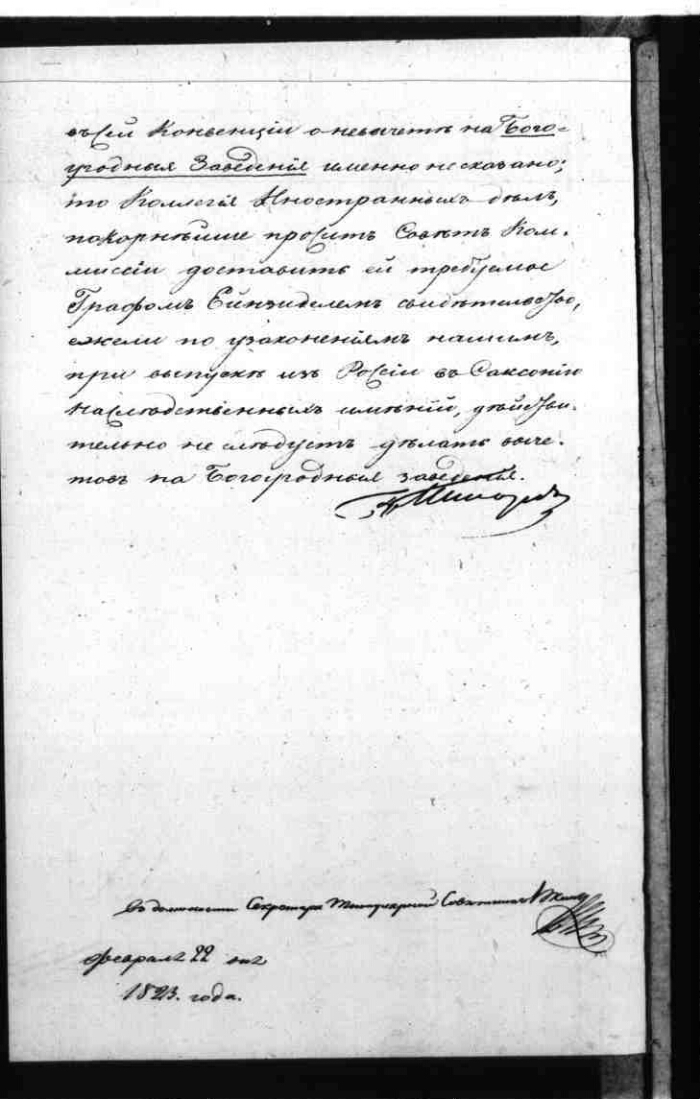 въ сей Конвенціи о невычетѣ на Бого-
угодныя Заведенія именно не сказано;
то Коллегія Иностранныхъ дѣлъ,
покорнѣйше проситъ Совѣтъ Ком-
миссіи доставить ей требуемое
Графомъ Ейнзиделемъ свидѣтельство,
ежели по узаконеніямъ нашимъ,
при выпускѣ изъ Россіи въ Саксонію
наслѣдственныхъ имѣній, дѣйстви-
тельно не слѣдуетъ дѣлать выче-
товъ на Богоугодныя заведенія.
Въ должности Секретаря Титулярный Совѣтникъ
Февраля 22 дня
1823. года.